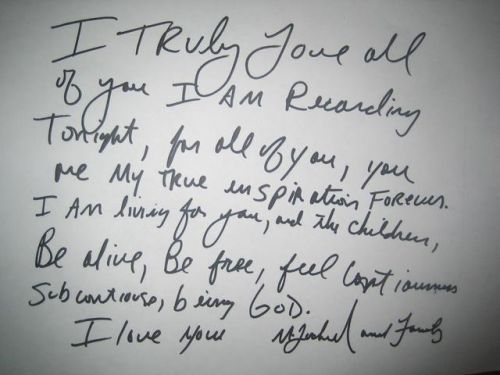 I TRuly Love all
of you I AM Recording
Tonight, for all of you, you
are My TRue inSpiRation FoReveR.
I AM living for you, and The children,
Be alive, Be free, feel
SubContiouse, being GOD.
I love you Michael and Family